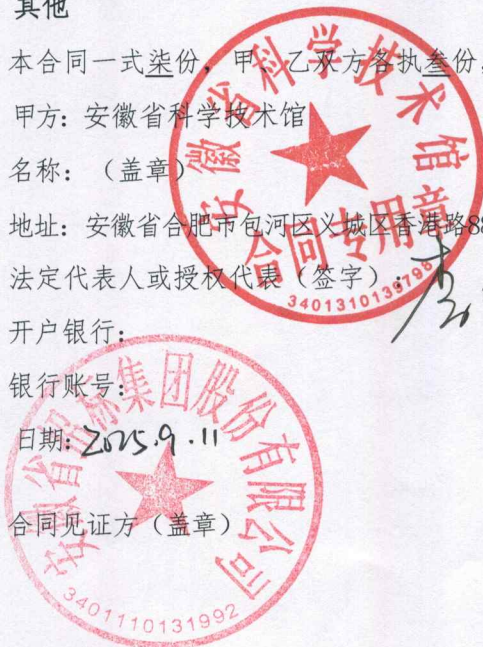 其他
本合同一式柒份，甲、乙双方各执叁份，
甲方：安徽省科学技术馆
名称：（盖章）
地址：安徽省合肥市包河区义城区香港路88
法定代表人或授权代表（签字）：
开户银行：
银行账号：
日期：2025.9.11
合同见证方（盖章）
安徽省科学技术馆
合同专用章
3401310139798
安徽省招标集团股份有限公司
3401110131992